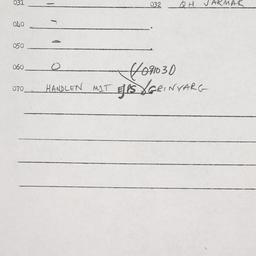 031 – 032 QH JARMAR
040 –
050 –
060 O 09103D
070 HANDLEN MIT EJPS GRINVARG